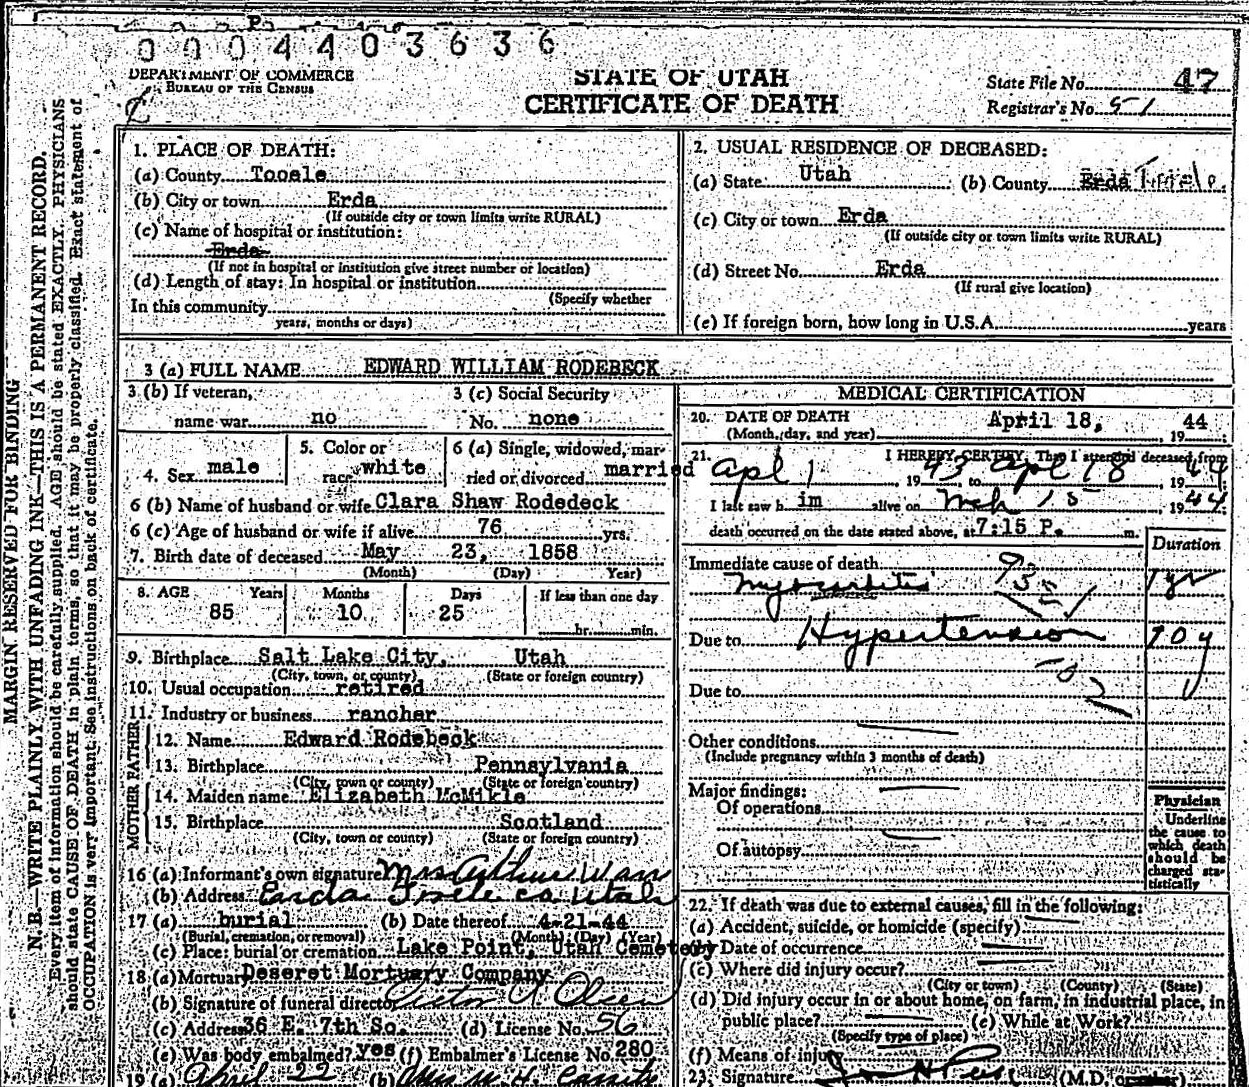 0 0 0 4 4 0 3 6 3 6
DEPARTMENT OF COMMERCE
BUREAU OF THE CENSUS
STATE OF UTAH
CERTIFICATE OF DEATH
State File No. 47
Registrar's No. 51
MARGIN RESERVED FOR BINDING
N. B.—WRITE PLAINLY WITH UNFADING INK—THIS IS A PERMANENT RECORD.
Every item of information should be carefully supplied. AGE should be stated EXACTLY. PHYSICIANS
should state CAUSE OF DEATH in plain terms, so that it may be properly classified. Exact statement of
OCCUPATION is very important. See instructions on back of certificate.
1. PLACE OF DEATH:
(a) County Tooele
(b) City or town Erda
(If outside city or town limits write RURAL)
(c) Name of hospital or institution:
Erda
(If not in hospital or institution give street number or location)
(d) Length of stay: In hospital or institution
(Specify whether
In this community
years, months or days)
2. USUAL RESIDENCE OF DECEASED:
(a) State Utah (b) County Erda Tooele
(c) City or town Erda
(If outside city or town limits write RURAL)
(d) Street No. Erda
(If rural give location)
(e) If foreign born, how long in U.S.A. years
3 (a) FULL NAME EDWARD WILLIAM RODEBECK
3 (b) If veteran,
name war no
3 (c) Social Security
No. none
4. Sex male
5. Color or
race white
6 (a) Single, widowed, mar-
ried or divorced married
6 (b) Name of husband or wife Clara Shaw Rodedeck
6 (c) Age of husband or wife if alive 76 yrs.
7. Birth date of deceased May 23, 1858
(Month) (Day) Year)
8. AGE Years Months Days If less than one day
85 10 25 hr. min.
9. Birthplace Salt Lake City, Utah
(City, town, or county) (State or foreign country)
10. Usual occupation retired
11. Industry or business rancher
FATHER
12. Name Edward Rodebeck
13. Birthplace Pennsylvania
(City, town or county) (State or foreign country)
MOTHER
14. Maiden name Elizabeth McMikle
15. Birthplace Scotland
(City, town or county) (State or foreign country)
16 (a) Informant's own signature Mrs Arthur Warr
(b) Address Erda Tooele co. Utah
17 (a) burial (b) Date thereof 4-21-44
(Burial, cremation, or removal) (Month) (Day) (Year)
(c) Place: burial or cremation Lake Point, Utah Cemetery
18 (a) Mortuary Deseret Mortuary Company
(b) Signature of funeral director Olsen
(c) Address 36 E. 7th So. (d) License No. 56
(e) Was body embalmed? yes (f) Embalmer's License No. 280
19 (a) April 22 (b)
MEDICAL CERTIFICATION
20. DATE OF DEATH April 18, 44
(Month, day, and year) , 19
21. I HEREBY CERTIFY, That I attended deceased from
Apl 1 19 43 to Apl 18 19 44
I last saw h im alive on Mch 15 19 44
death occurred on the date stated above, at 7:15 P. m.
Duration
Immediate cause of death
Myocarditis 935 1 yr
Due to Hypertension 10 y
Due to
Other conditions
(Include pregnancy within 3 months of death)
Major findings:
Of operations
Of autopsy
Physician
Underline
the cause to
which death
should be
charged sta-
tistically
22. If death was due to external causes, fill in the following:
(a) Accident, suicide, or homicide (specify)
(b) Date of occurrence
(c) Where did injury occur?
(City or town) (County) (State)
(d) Did injury occur in or about home, on farm, in industrial place, in
public place? (e) While at Work?
(Specify type of place)
(f) Means of injury
23. Signature (M.D.